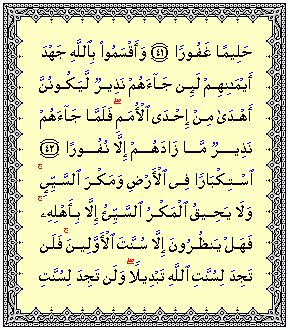 حَلِيمًا غَفُورًا ﴿٤١﴾ وَأَقْسَمُوا۟ بِٱللَّهِ جَهْدَ
أَيْمَٰنِهِمْ لَئِن جَآءَهُمْ نَذِيرٌ لَّيَكُونُنَّ
أَهْدَىٰ مِنْ إِحْدَى ٱلْأُمَمِ ۖ فَلَمَّا جَآءَهُمْ
نَذِيرٌ مَّا زَادَهُمْ إِلَّا نُفُورًا ﴿٤٢﴾
ٱسْتِكْبَارًا فِى ٱلْأَرْضِ وَمَكْرَ ٱلسَّيِّئِ ۚ
وَلَا يَحِيقُ ٱلْمَكْرُ ٱلسَّيِّئُ إِلَّا بِأَهْلِهِۦ ۚ
فَهَلْ يَنظُرُونَ إِلَّا سُنَّتَ ٱلْأَوَّلِينَ ۚ فَلَن
تَجِدَ لِسُنَّتِ ٱللَّهِ تَبْدِيلًا ۖ وَلَن تَجِدَ لِسُنَّتِ